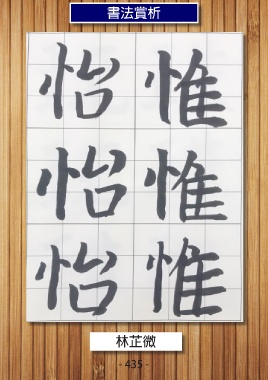 書法賞析
惟怡
惟怡
惟怡
林芷微
- 435 -